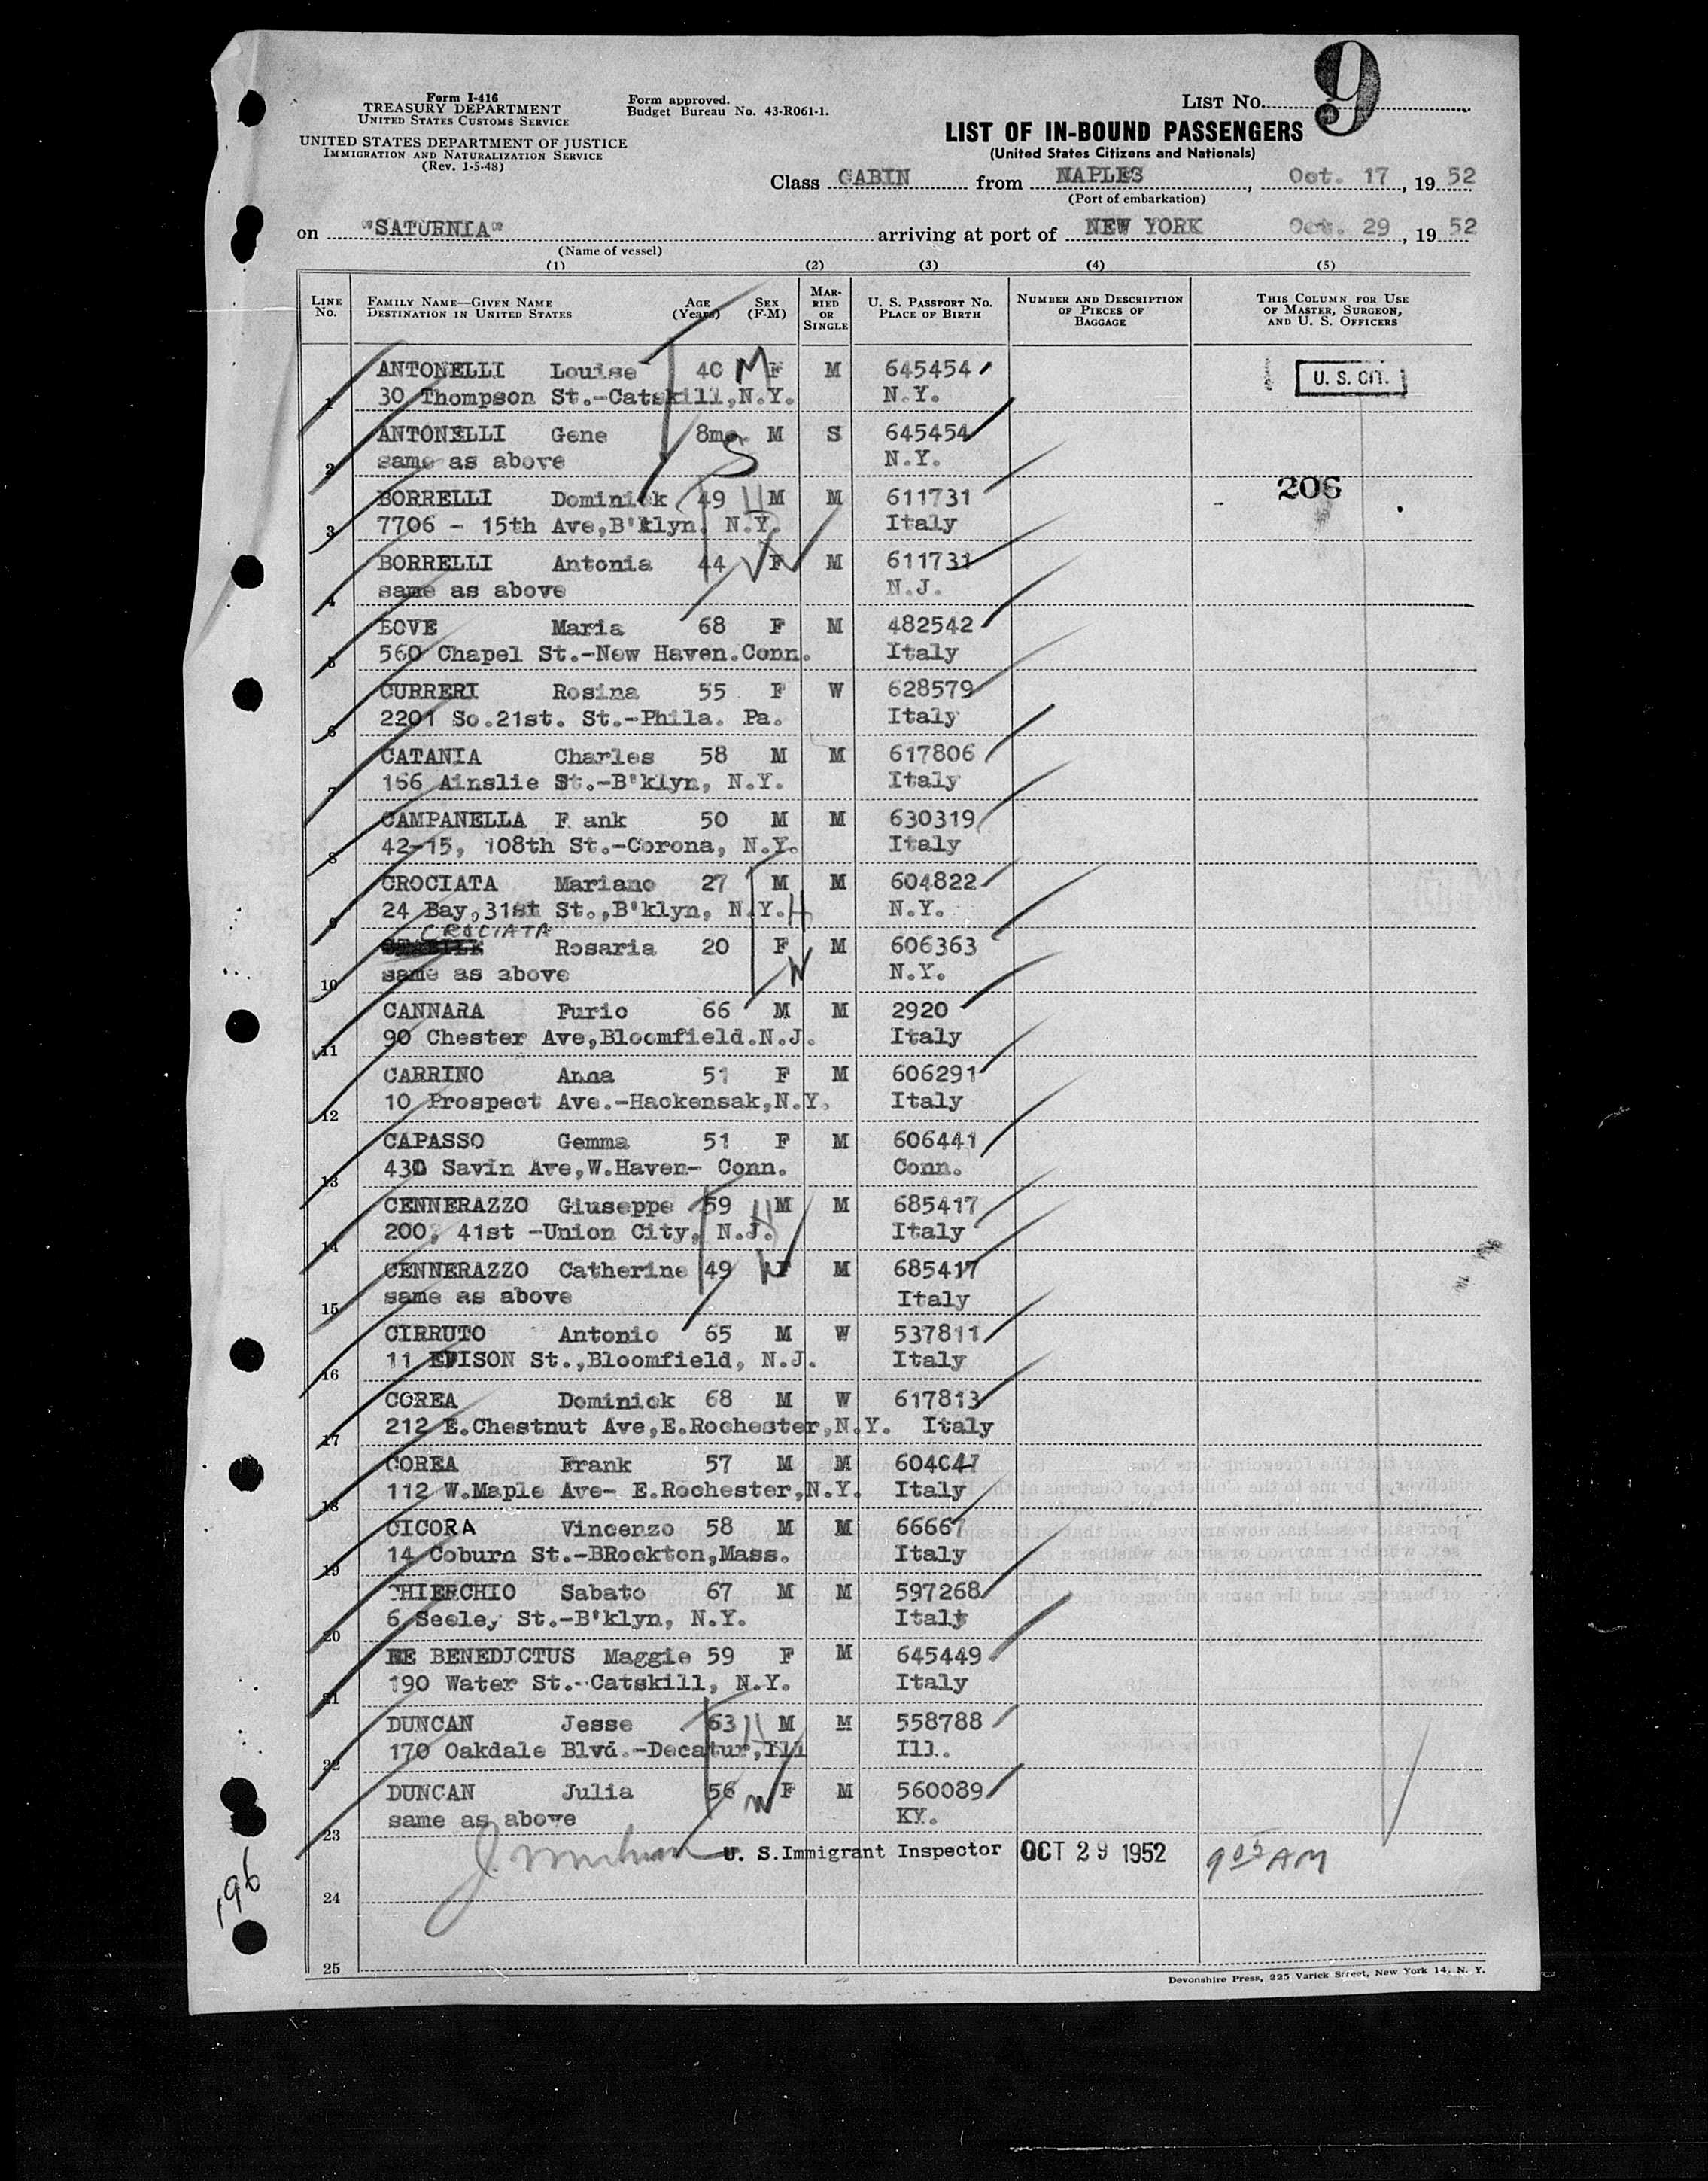 9
Form I-416
TREASURY DEPARTMENT
UNITED STATES CUSTOMS SERVICE
UNITED STATES DEPARTMENT OF JUSTICE
IMMIGRATION AND NATURALIZATION SERVICE
(Rev. 1-5-48)
Form approved.
Budget Bureau No. 43-R061-1.
LIST NO.
LIST OF IN-BOUND PASSENGERS
(United States Citizens and Nationals)
Class CABIN from NAPLES, Oct. 17, 1952
(Port of embarkation)
on "SATURNIA" arriving at port of NEW YORK Oct. 29, 1952
(Name of vessel)
(1) (2) (3) (4) (5)
LINE NO. FAMILY NAME—GIVEN NAME DESTINATION IN UNITED STATES AGE (Years) SEX (F-M) MARRIED OR SINGLE U. S. PASSPORT NO. PLACE OF BIRTH NUMBER AND DESCRIPTION OF PIECES OF BAGGAGE THIS COLUMN FOR USE OF MASTER, SURGEON, AND U. S. OFFICERS
ANTONELLI Louise 40 M F M 645454 U. S. CIT.
1 30 Thompson St.-Catskill,N.Y. N.Y.
ANTONELLI Gene 8mo. M S 645454
2 same as above S N.Y.
BORRELLI Dominick 49 H M M 611731 206
3 7706 - 15th Ave,B'klyn. N.Y. Italy
BORRELLI Antonia 44 W F M 611731
4 same as above N.J.
BOVE Maria 68 F M 482542
5 560 Chapel St.-New Haven.Conn. Italy
CURRERI Rosina 55 F W 628579
6 2201 So.21st. St.-Phila. Pa. Italy
CATANIA Charles 58 M M 617806
7 166 Ainslie St.-B'klyn, N.Y. Italy
CAMPANELLA F ank 50 M M 630319
8 42-15, 108th St.-Corona, N.Y. Italy
CROCIATA Mariano 27 M M 604822
9 24 Bay,31st St.,B'klyn, N.Y. H N.Y.
CROCIATA
Rosaria 20 F M 606363
10 same as above W N.Y.
CANNARA Furio 66 M M 2920
11 90 Chester Ave,Bloomfield.N.J. Italy
CARRINO Anna 51 F M 606291
12 10 Prospect Ave.-Hackensak,N.Y. Italy
CAPASSO Gemma 51 F M 606441
13 430 Savin Ave,W.Haven- Conn. Conn.
CENNERAZZO Giuseppe 59 H M M 685417
14 200, 41st -Union City, N.J. Italy
CENNERAZZO Catherine 49 W F M 685417
15 same as above Italy
CIRRUTO Antonio 65 M W 537811
16 11 EDISON St.,Bloomfield, N.J. Italy
COREA Dominick 68 M W 617813
17 212 E.Chestnut Ave,E.Rochester,N.Y. Italy
COREA Frank 57 M M 604047
18 112 W.Maple Ave- E.Rochester,N.Y. Italy
CICORA Vincenzo 58 M M 66667
19 14 Coburn St.-BRockton,Mass. Italy
CHIERCHIO Sabato 67 M M 597268
20 6 Seeley St.-B'klyn, N.Y. Italy
DE BENEDICTUS Maggie 59 F M 645449
21 190 Water St.-Catskill, N.Y. Italy
DUNCAN Jesse 63 H M M 558788
22 170 Oakdale Blvd.-Decatur,Ill Ill.
DUNCAN Julia 56 W F M 560089
23 same as above KY.
U. S. Immigrant Inspector OCT 29 1952 9 05 AM
24
25
196
Devonshire Press, 225 Varick Street, New York 14, N. Y.